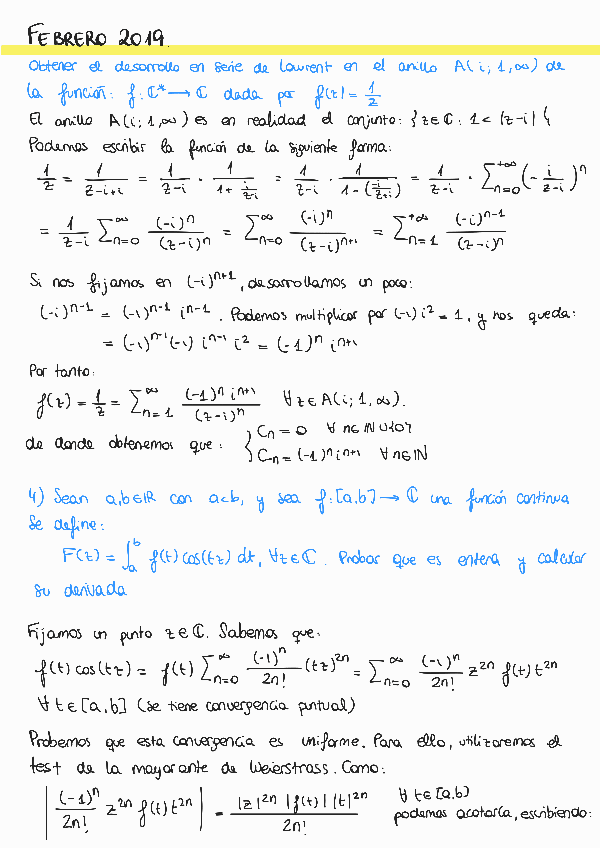 FEBRERO 2019.
Obtener el desarrollo en serie de Laurent en el anillo A(i; 1, ∞) de
la función: f: ℂ* → ℂ dada por f(z) = 1/z
El anillo A(i; 1, ∞) es en realidad el conjunto: {z∈ℂ: 1 < |z-i| {
Podemos escribir la función de la siguiente forma:
1/z = 1/(z-i+i) = 1/(z-i) · 1/(1 + i/(z-i)) = 1/(z-i) · 1/(1-(-i/(z+i))) = 1/(z-i) · Σ_{n=0}^{+∞} (-i/(z-i))^n
= 1/(z-i) Σ_{n=0}^{∞} (-i)^n/(z-i)^n = Σ_{n=0}^{∞} (-i)^n/(z-i)^{n+1} = Σ_{n=1}^{+∞} (-i)^{n-1}/(z-i)^n
Si nos fijamos en (-i)^{n+1}, desarrollamos un poco:
(-i)^{n-1} = (-1)^{n-1} i^{n-1}. Podemos multiplicar por (-1) i² = 1, y nos queda:
= (-1)^{n-1} (-1) i^{n-1} i² = (-1)^n i^{n+1}
Por tanto:
f(z) = 1/z = Σ_{n=1}^{∞} (-1)^n i^{n+1}/(z-i)^n ∀z∈A(i; 1, ∞).
de donde obtenemos que: { C_n = 0 ∀n∈ℕ∪{0}
C_n = (-1)^n i^{n+1} ∀n∈ℕ
4) Sean a,b∈ℝ con a<b, y sea f: [a,b] → ℂ una función continua
Se define:
F(z) = ∫_a^b f(t) cos(tz) dt, ∀z∈ℂ. Probar que es entera y calcular
su derivada
Fijamos un punto z∈ℂ. Sabemos que:
f(t) cos(tz) = f(t) Σ_{n=0}^{∞} (-1)^n/2n! (tz)^{2n} = Σ_{n=0}^{∞} (-1)^n/2n! z^{2n} f(t) t^{2n}
∀t∈[a,b] (se tiene convergencia puntual)
Probemos que esta convergencia es uniforme. Para ello, utilizaremos el
test de la mayorante de Weierstrass. Como:
|(-1)^n/2n! z^{2n} f(t) t^{2n}| = |z|^{2n} |f(t)| |t|^{2n}/2n! ∀t∈[a,b]
podemos acotarla, escribiendo: